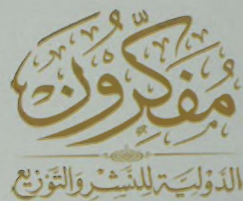 مُفَكِّرُونَ
الدَّوْليَّة لِلنَّشْرِ وَالتَّوْزِيْع